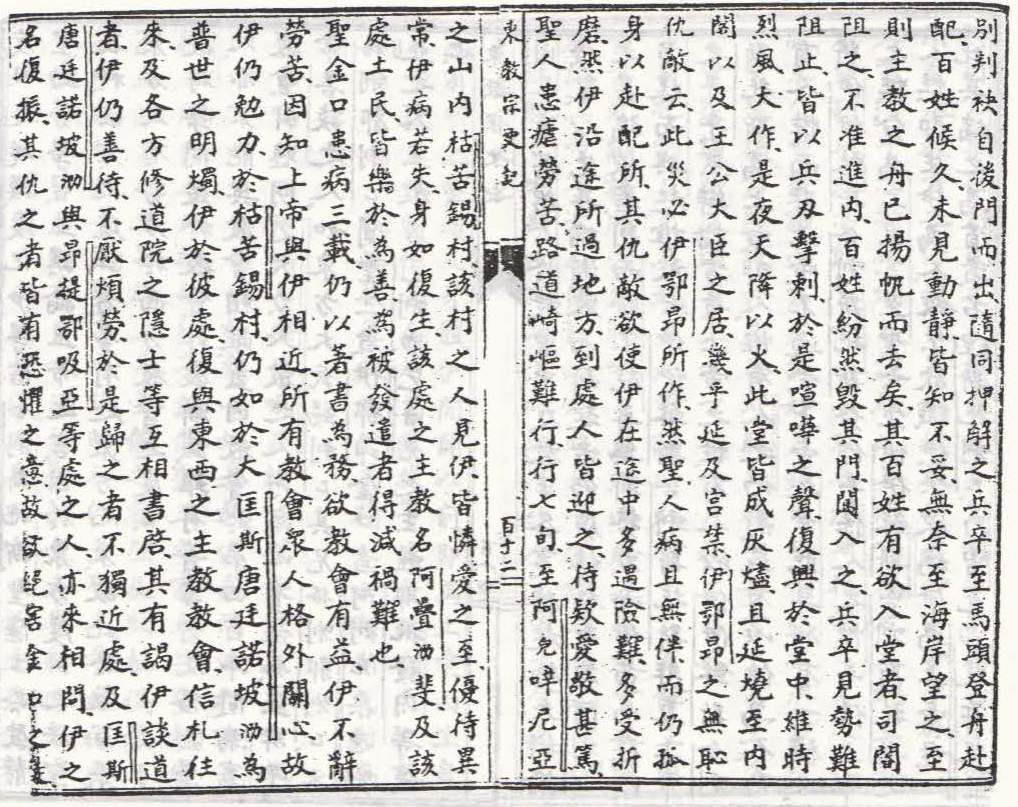 別判袂自後門而出、隨同押解之兵卒至馬頭登舟赴
配、百姓候久、未見動靜、皆知不妥、無奈至海岸望之、至
則主教之舟已揚帆而去矣、其百姓有欲入堂者、司閽
阻之、不准進內、百姓紛然毀其門、闖入之、兵卒見勢難
阻止、皆以兵刃擊刺、於是喧嘩之聲、復興於堂中、維時
烈風大作、是夜天降以火、此堂皆成灰燼、且延燒至內
閣以及王公大臣之居、幾乎延及宮禁、伊鄂昂之無恥
仇敵云、此災必伊鄂昂所作、然聖人病且無伴、而仍孤
身以赴配所、其仇敵欲使伊在途中多遇險難、多受折
磨、然伊沿途所過地方、到處人皆迎之、待欵愛敬甚篤、
聖人患瘧勞苦、路道崎嶇難行、行七旬、至阿兒哶尼亞
東教宗史記
百十二
之山內枯苦錫村、該村之人見伊、皆憐愛之至、優待異
常、伊病若失、身如復生、該處之主教名阿疊沕斐、及該
處土民、皆樂於為善、為被發遣者得減禍難也、
聖金口患病三載、仍以著書為務、欲教會有益、伊不辭
勞苦、因知上帝與伊相近、所有教會眾人格外關心、故
伊仍勉力、於枯苦錫村、仍如於大匡斯唐廷諾坡沕為
普世之明燭、伊於彼處、復與東西之主教教會、信札往
來、及各方修道院之隱士等互相書啓、其有謁伊談道
者、伊仍善待、不厭煩勞、於是歸之者不獨近處、及匡斯
唐廷諾坡沕與昂提鄂吸亞等處之人、亦來相問、伊之
名復振、其仇之者皆有恐懼之意、故欲絕害金口之